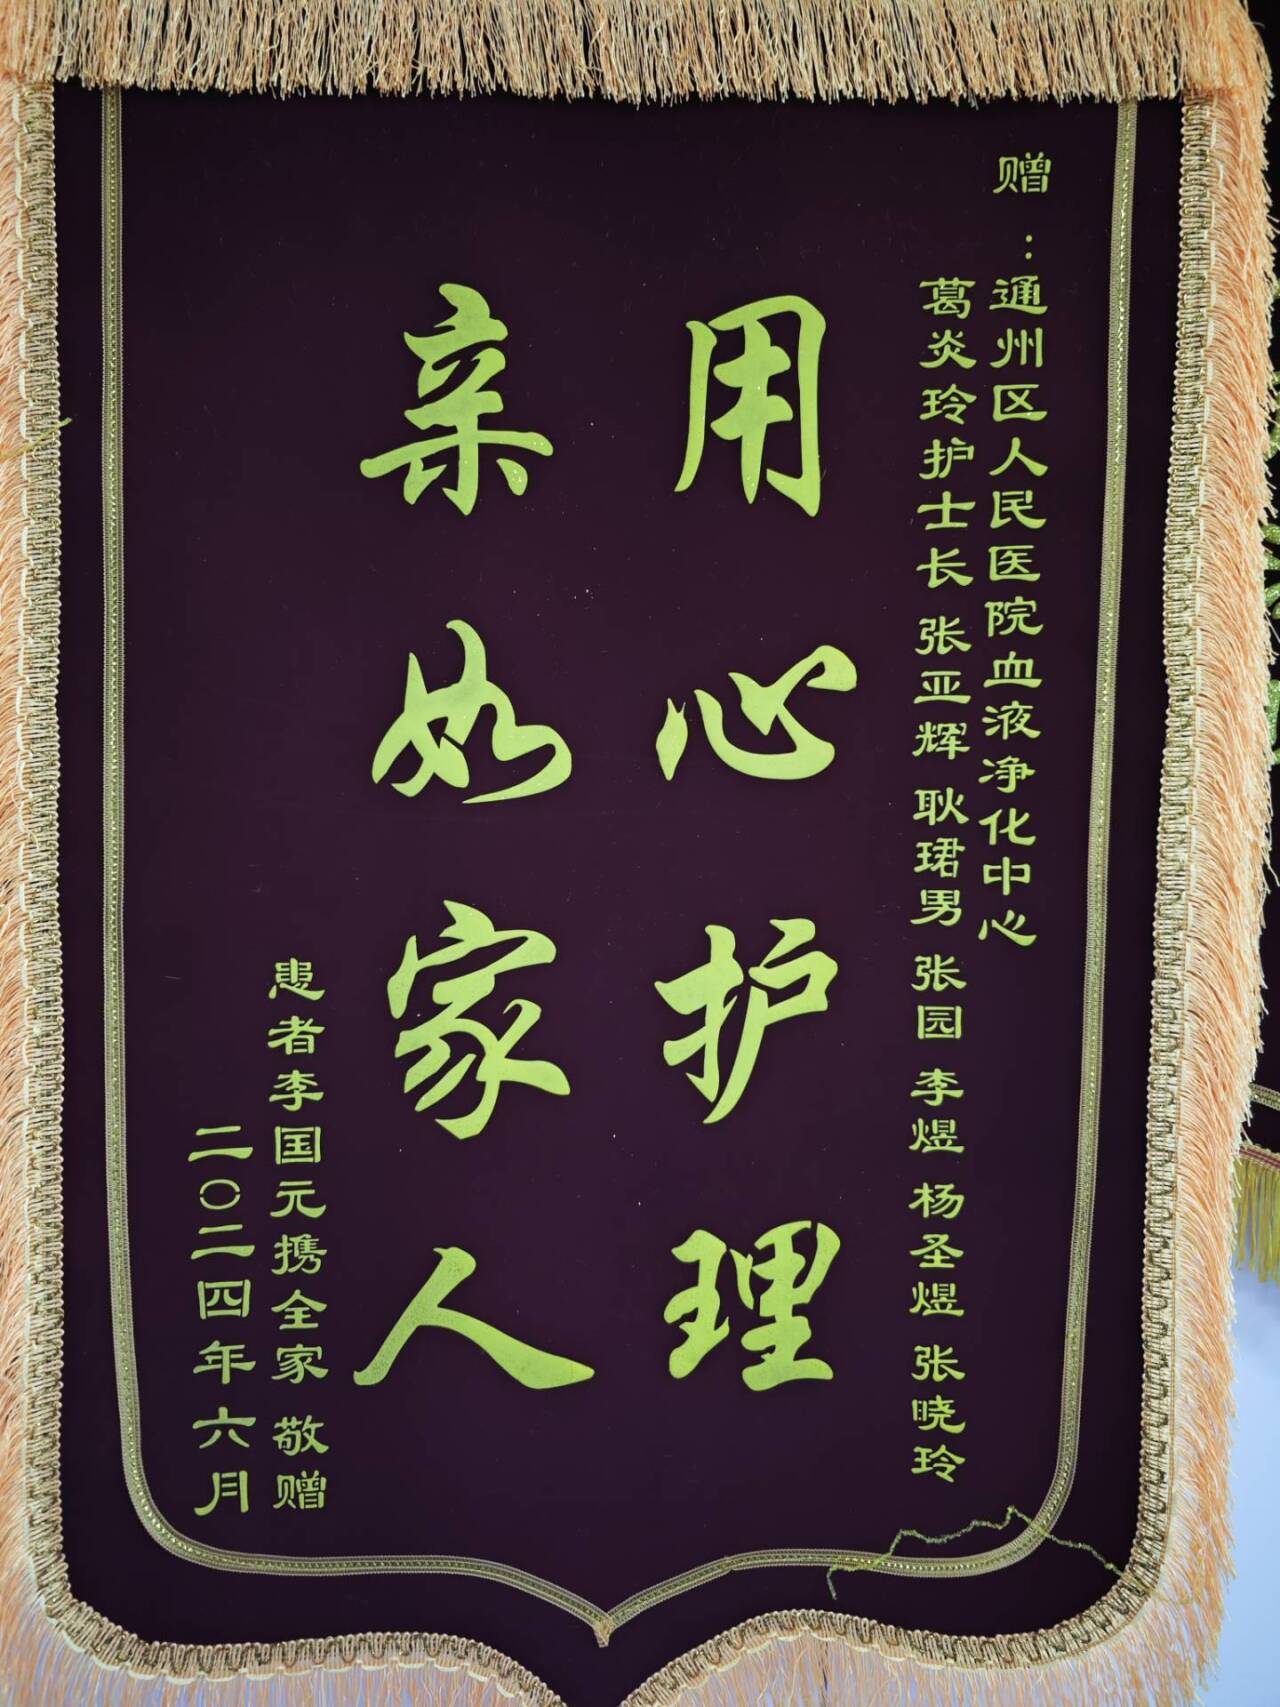 赠:通州区人民医院血液净化中心
葛炎玲护士长 张亚辉 耿珺男 张园 李煜 杨圣煜 张晓玲
用心护理
亲如家人
患者李国元携全家 敬赠
二〇二四年六月